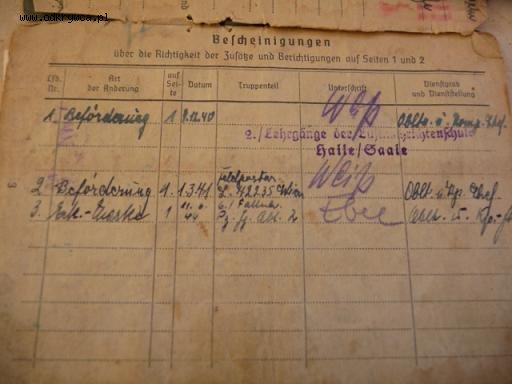 www.odkrywca.pl
Bescheinigungen
über die Richtigkeit der Zusätze und Berichtigungen auf Seiten 1 und 2
Lfd. Nr. Art der Änderung auf Seite Datum Truppenteil Unterschrift Dienstgrad und Dienststellung
1 Beförderung 1 9.12.40 Weiß Oblt. u. Komp. Chef
2./Lehrgänge der Luftnachrichtenschule
Halle/Saale
2 Beförderung 1. 1.3.41 L 42235 Wien Weiß Oblt. u. Kp. Chef
3. Erk.-Marke 1
3